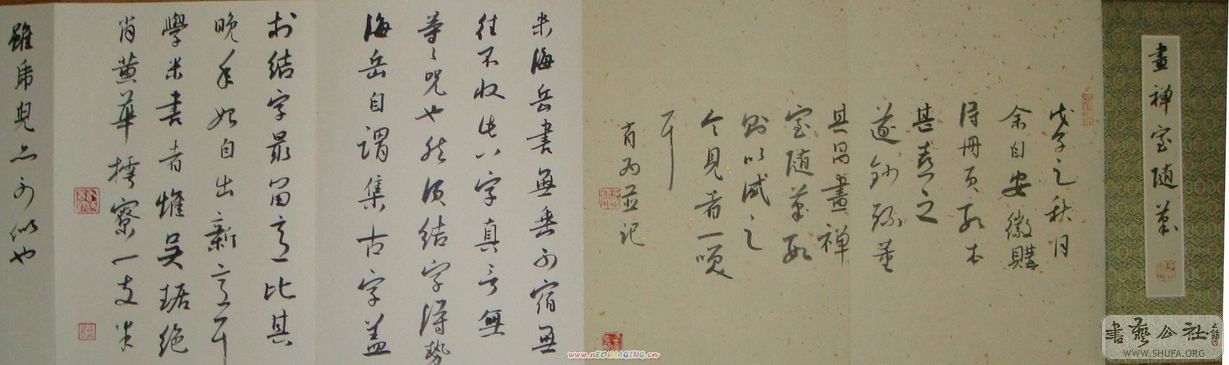 畫禪室隨筆
戊子之秋月
余自安徽購
得冊頁數本
甚喜之
遂鈔錄董
其昌畫禪
室隨筆數
則以試之
令見者一哂
耳
肖为並记
米海岳書無垂不宿無
往不收此八字真言無
等〻呪也然須結字得勢
海岳自謂集古字蓋
於結字最留意比其
晚年始自出新意耳
學米書者惟吳琚絕
肖黃華樗寮一支半
雖虎兒亦不似也
www.nEOIMAGING.cn
書藝公社
WWW.SHUFA.ORG